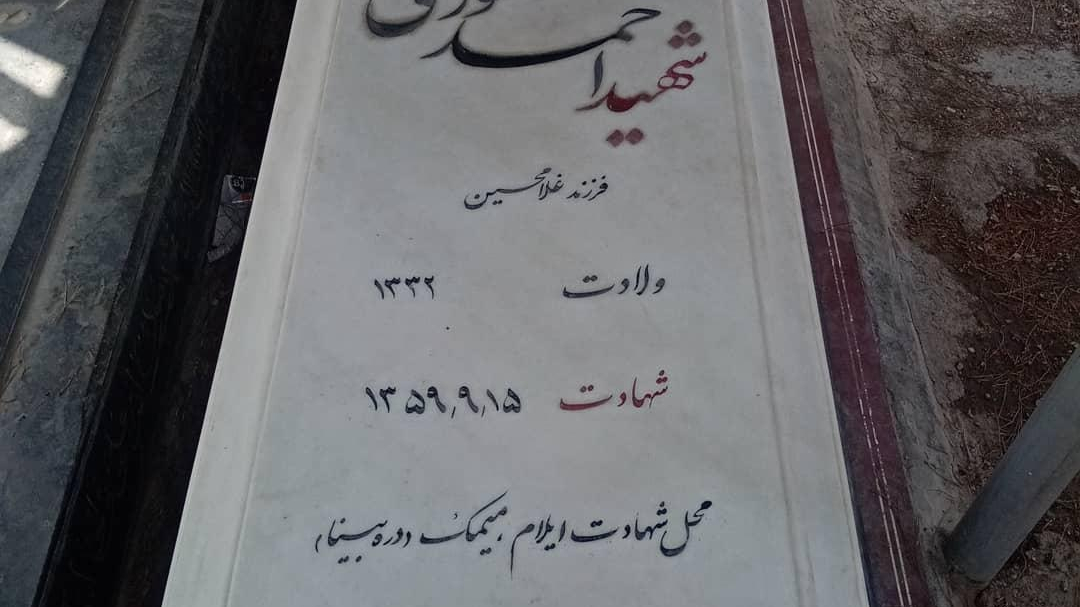 شهید احمد
فرزند غلامحسین
ولادت ۱۳۳۲
شهادت ۱۳۵۹٫۹٫۱۵
محل شهادت ایلام ، میمک دوره بینا